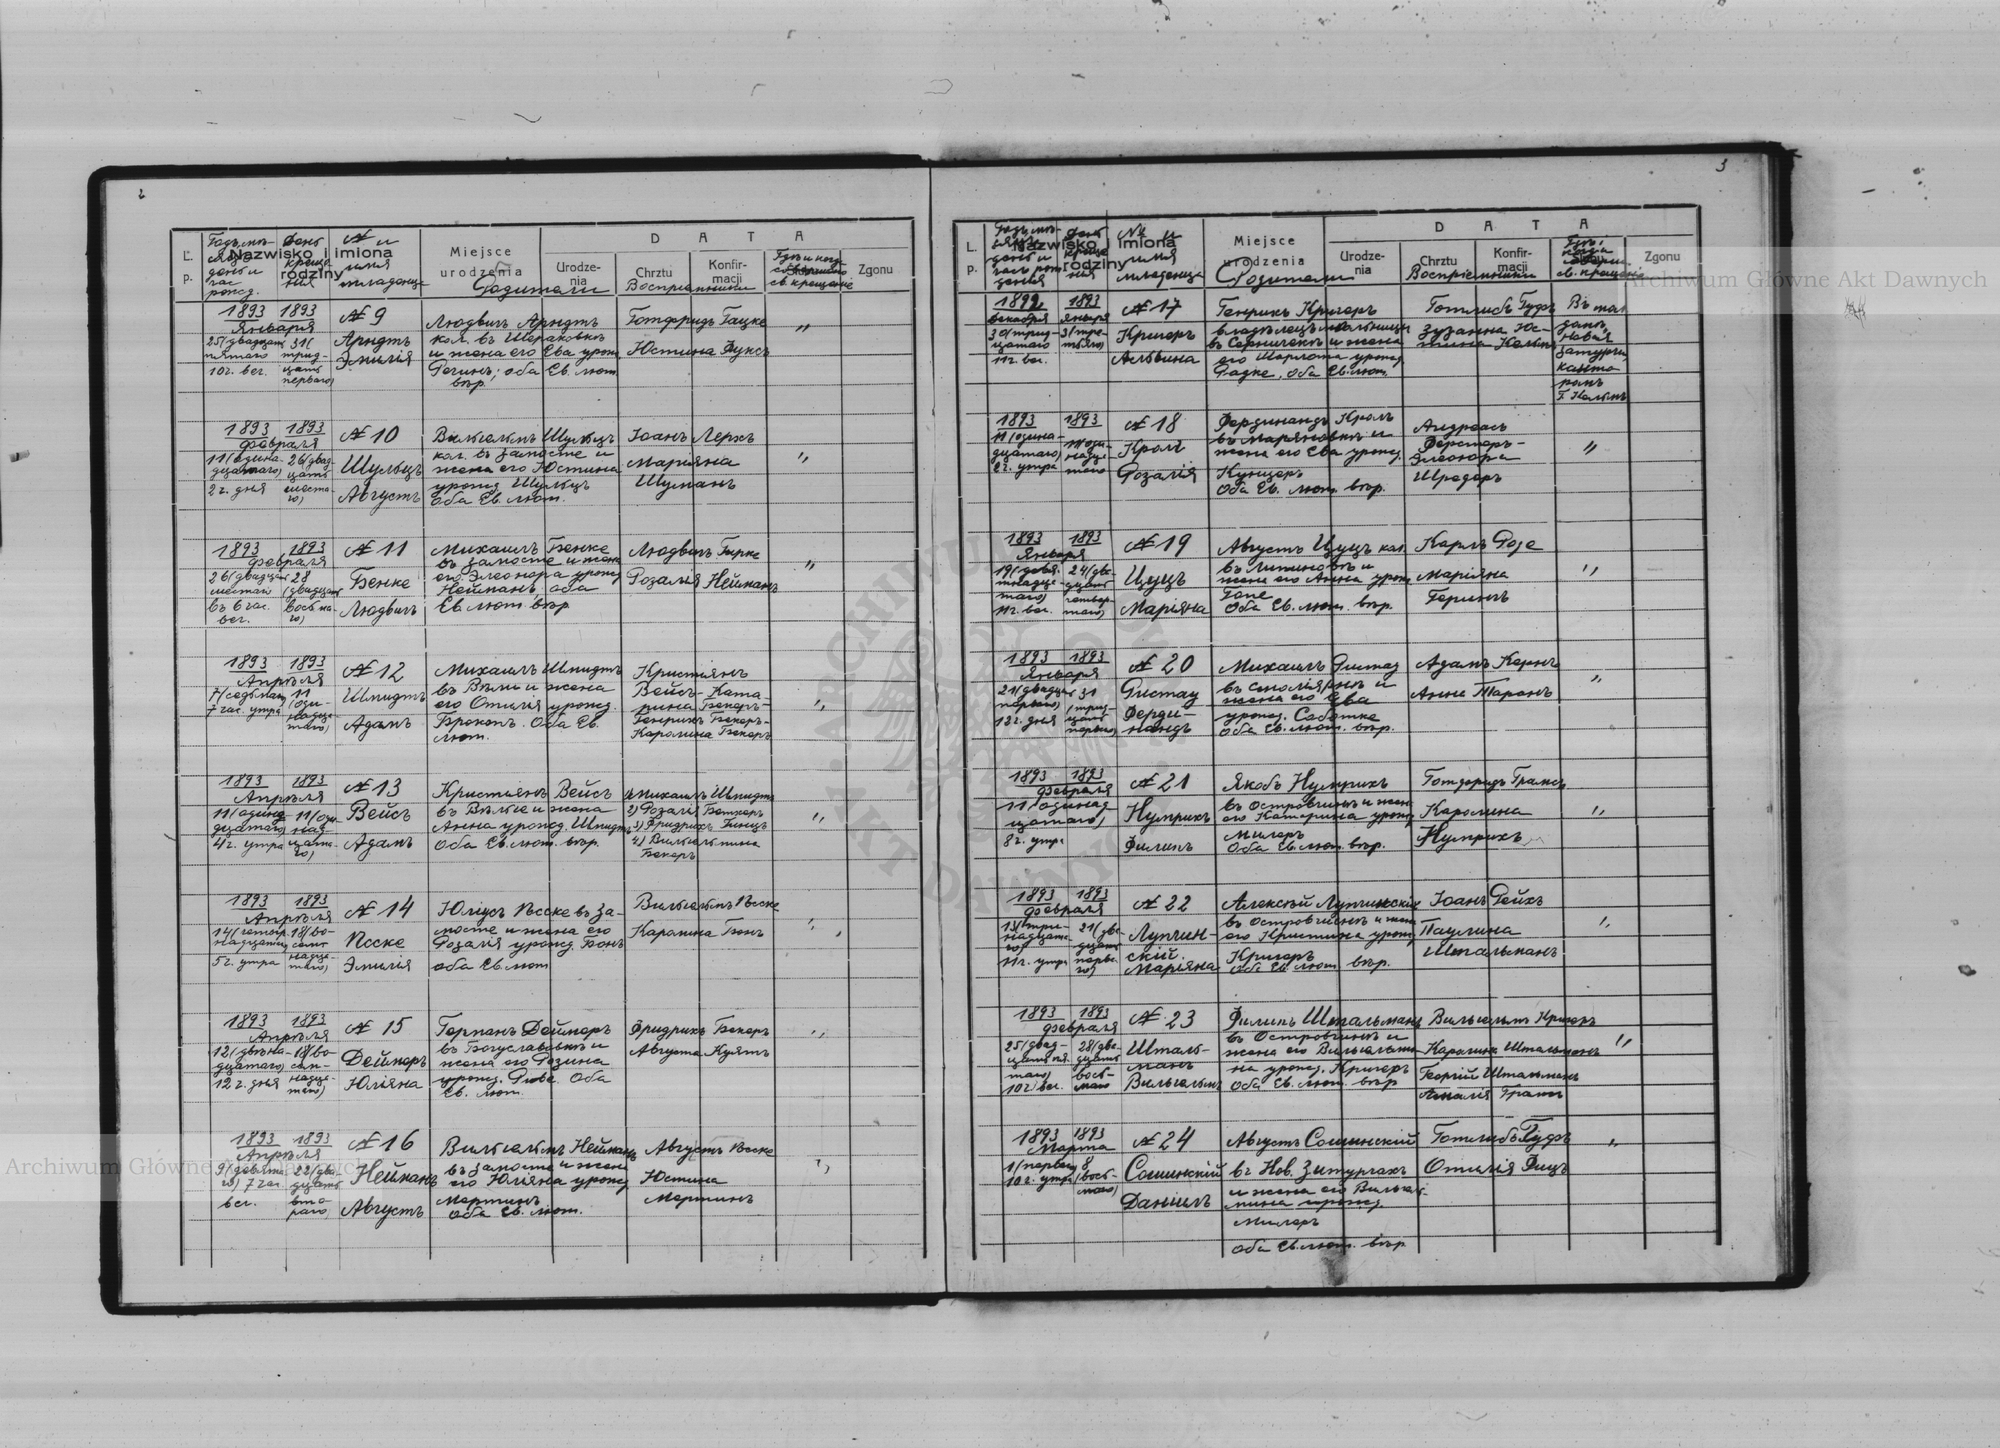 2
L.
p.
Nazwisko i imiona
rodziny
Miejsce
urodzenia
D A T A
Urodze-
nia
Chrztu
Konfir-
macji
Zgonu
Родители
Восприемники
св. крещение
1893 1893
Января
25(двадцать
пятаго
10 ч. веч.
31(
трид-
цать
перваго)
№ 9
Арндтъ
Эмилія
Людвигъ Арндтъ
кол. въ
и жена его Ева урожд.
оба Ев. лют.
вѣр.
Готфридъ Гацке
Юстина Фуксъ
"
1893 1893
Февраля
11(одина-
дцатаго)
2 ч. дня
26(двад-
цать
шеста-
го)
№ 10
Шульцъ
Августъ
Вильгельмъ Шульцъ
кол. въ Замосте и
жена его Юстина
урожд. Шульцъ
Оба Ев. лют.
Іоанъ Лерхъ
Маріяна
Шуманъ
"
1893 1893
Февраля
26(двадцат
шестаго
въ 6 час.
веч.
28
(двадцать
восьма-
го)
№ 11
Бенке
Людвигъ
Михаилъ Бенке
въ Замосте и жена
его Элеонора урожд.
Нейманъ оба
Ев. лют. вѣр
Людвигъ Гирке
Розалія Нейманъ
"
1893 1893
Апрѣля
7(седьмаго
7 час. утра
11
(оди-
надца-
таго)
№ 12
Шмидтъ
Адамъ
Михаилъ Шмидтъ
въ Вѣли и жена
его Отилія урожд.
Оба Ев.
лют.
Кристіянъ
Вейсъ - Ката-
рина Бекеръ -
Генрихъ Бекеръ -
Каролина Бекеръ
"
1893 1893
Апрѣля
11(одина
дцатаго)
4 ч. утра
11(оди-
над-
цата-
го)
№ 13
Вейсъ
Адамъ
Кристіянъ Вейсъ
въ Вѣлье и жена
Анна урожд. Шмидтъ
Оба Ев. лют. вѣр.
1) Михаилъ Шмидтъ
2) Розалія Беткеръ
3) Фридрихъ
4) Вильгельмина
Бекеръ
"
1893 1893
Апрѣля
14(четыр-
надцатаго
5 ч. утра
18(во-
семь
надца-
таго)
№ 14
Ѣсске
Эмилія
Юліусъ Ѣсске въ За-
мосте и жена его
Розалія урожд. Бонъ
оба Ев. лют
Вильгельмъ Ѣсске
Каролина Бонъ
"
1893 1893
Апрѣля
12(двѣна-
дцатаго)
12 ч. дня
18(во-
сем-
надца-
таго)
№ 15
Деймеръ
Юліяна
Германъ Деймеръ
въ Богуславовкѣ и
жена его Розина
урожд. Рюве. Оба
Ев. лют.
Фридрихъ Бекеръ
Августа Куятъ
"
1893 1893
Апрѣля
9(девята-
го) 7 час.
веч.
22(два-
дцать
вто-
раго)
№ 16
Нейманъ
Августъ
Вильгельмъ Нейманъ
въ Замосте и жена
его Юліяна урожд.
Мертинъ
Оба Ев. лют.
Августъ Ѣсске
Юстина
Мертинъ
"
3
L.
p.
Nazwisko i imiona
rodziny
Miejsce
urodzenia
D A T A
Urodze-
nia
Chrztu
Konfir-
macji
Zgonu
Родители
Восприемники
св. крещенія
1892 1893
Декабря Января
30(трид-
цатаго
11 ч. веч.
3(тре-
тьяго)
№ 17
Кригеръ
Альвина
Генрихъ Кригеръ
владѣлецъ мельницы
въ Серничекъ и жена
его Шарлота урожд.
Радке, оба Ев. лют.
Готлибъ Гудъ
Зузанна
Въ мол
Новая
канто
ромъ
1893 1893
11(одина-
дцатаго)
2 ч. утра
11 оди-
надца-
таго
№ 18
Кроль
Розалія
Фердинандъ Кроль
въ Маряновкѣ и
жена его Ева урожд.
Кунцеръ
Оба Ев. лют. вѣр.
Андреасъ
Ферстеръ -
Элеонора
Шредеръ
"
1893 1893
Января
19(девят-
надца-
таго)
11 ч. веч.
24(два-
дцать
четвер-
таго)
№ 19
Цуцъ
Маріяна
Августъ Цуцъ кол.
въ Литиновкѣ и
жена его Анна урожд.
Гопе
Оба Ев. лют. вѣр.
Карлъ Розе
Маріяна
Герингъ
"
1893 1893
Января
21(двадцат
перваго)
12 ч. дня
31
(трид-
цать
перваго)
№ 20
Ристау
Ферди-
нандъ
Михаилъ Ристау
въ столярнѣ и
жена его Ева
урожд. Саботке
Оба Ев. лют. вѣр.
Адамъ Кернъ
Анна Таронъ
"
1893 1893
Февраля
11(одинад
цатаго)
8 ч. утра
№ 21
Нумрихъ
Филипъ
Якобъ Нумрихъ
въ Островчинѣ и жен
его Катарина урожд.
Милеръ
Оба Ев. лют. вѣр.
Готфридъ Грамсъ
Каролина
Нумрихъ
"
1893 1893
Февраля
13(три-
надцата-
го)
11 ч. утра
21(два-
дцать
перва-
го)
№ 22
Лупчин-
скій.
Маріяна
Алексѣй Лупчинскій
въ Островчинкѣ и жена
его Кристина урожд.
Кригеръ
Оба Ев лют вѣр.
Іоанъ Рейхъ
Паулина
Штальманъ
"
1893 1893
Февраля
25(двад-
цать пя-
таго)
10 ч. веч.
28(два-
дцать
вось-
маго
№ 23
Шталь-
манъ
Вильгельмъ
Филипъ Штальманъ
въ Островчинкѣ и
жена его Вильгельми-
на урожд. Кригеръ
Оба Ев. лют. вѣр
Вильгельмъ Кригеръ
Каролина Штальманъ
Георгій Штальманъ
Амалія Грамсъ
"
1893 1893
Марта
1(перваго
10 ч. утра
8
(вось-
маго)
№ 24
Сошинскій
Даніилъ
Августъ Сошинскій
въ Нов. Зитургахъ
и жена его Вильгель-
мина урожд.
Милеръ
Оба Ев. лют. вѣр
Готлибъ Гудъ
Отилія Фицъ
"
Archiwum Główne Akt Dawnych
Archiwum Główne Akt Dawnych